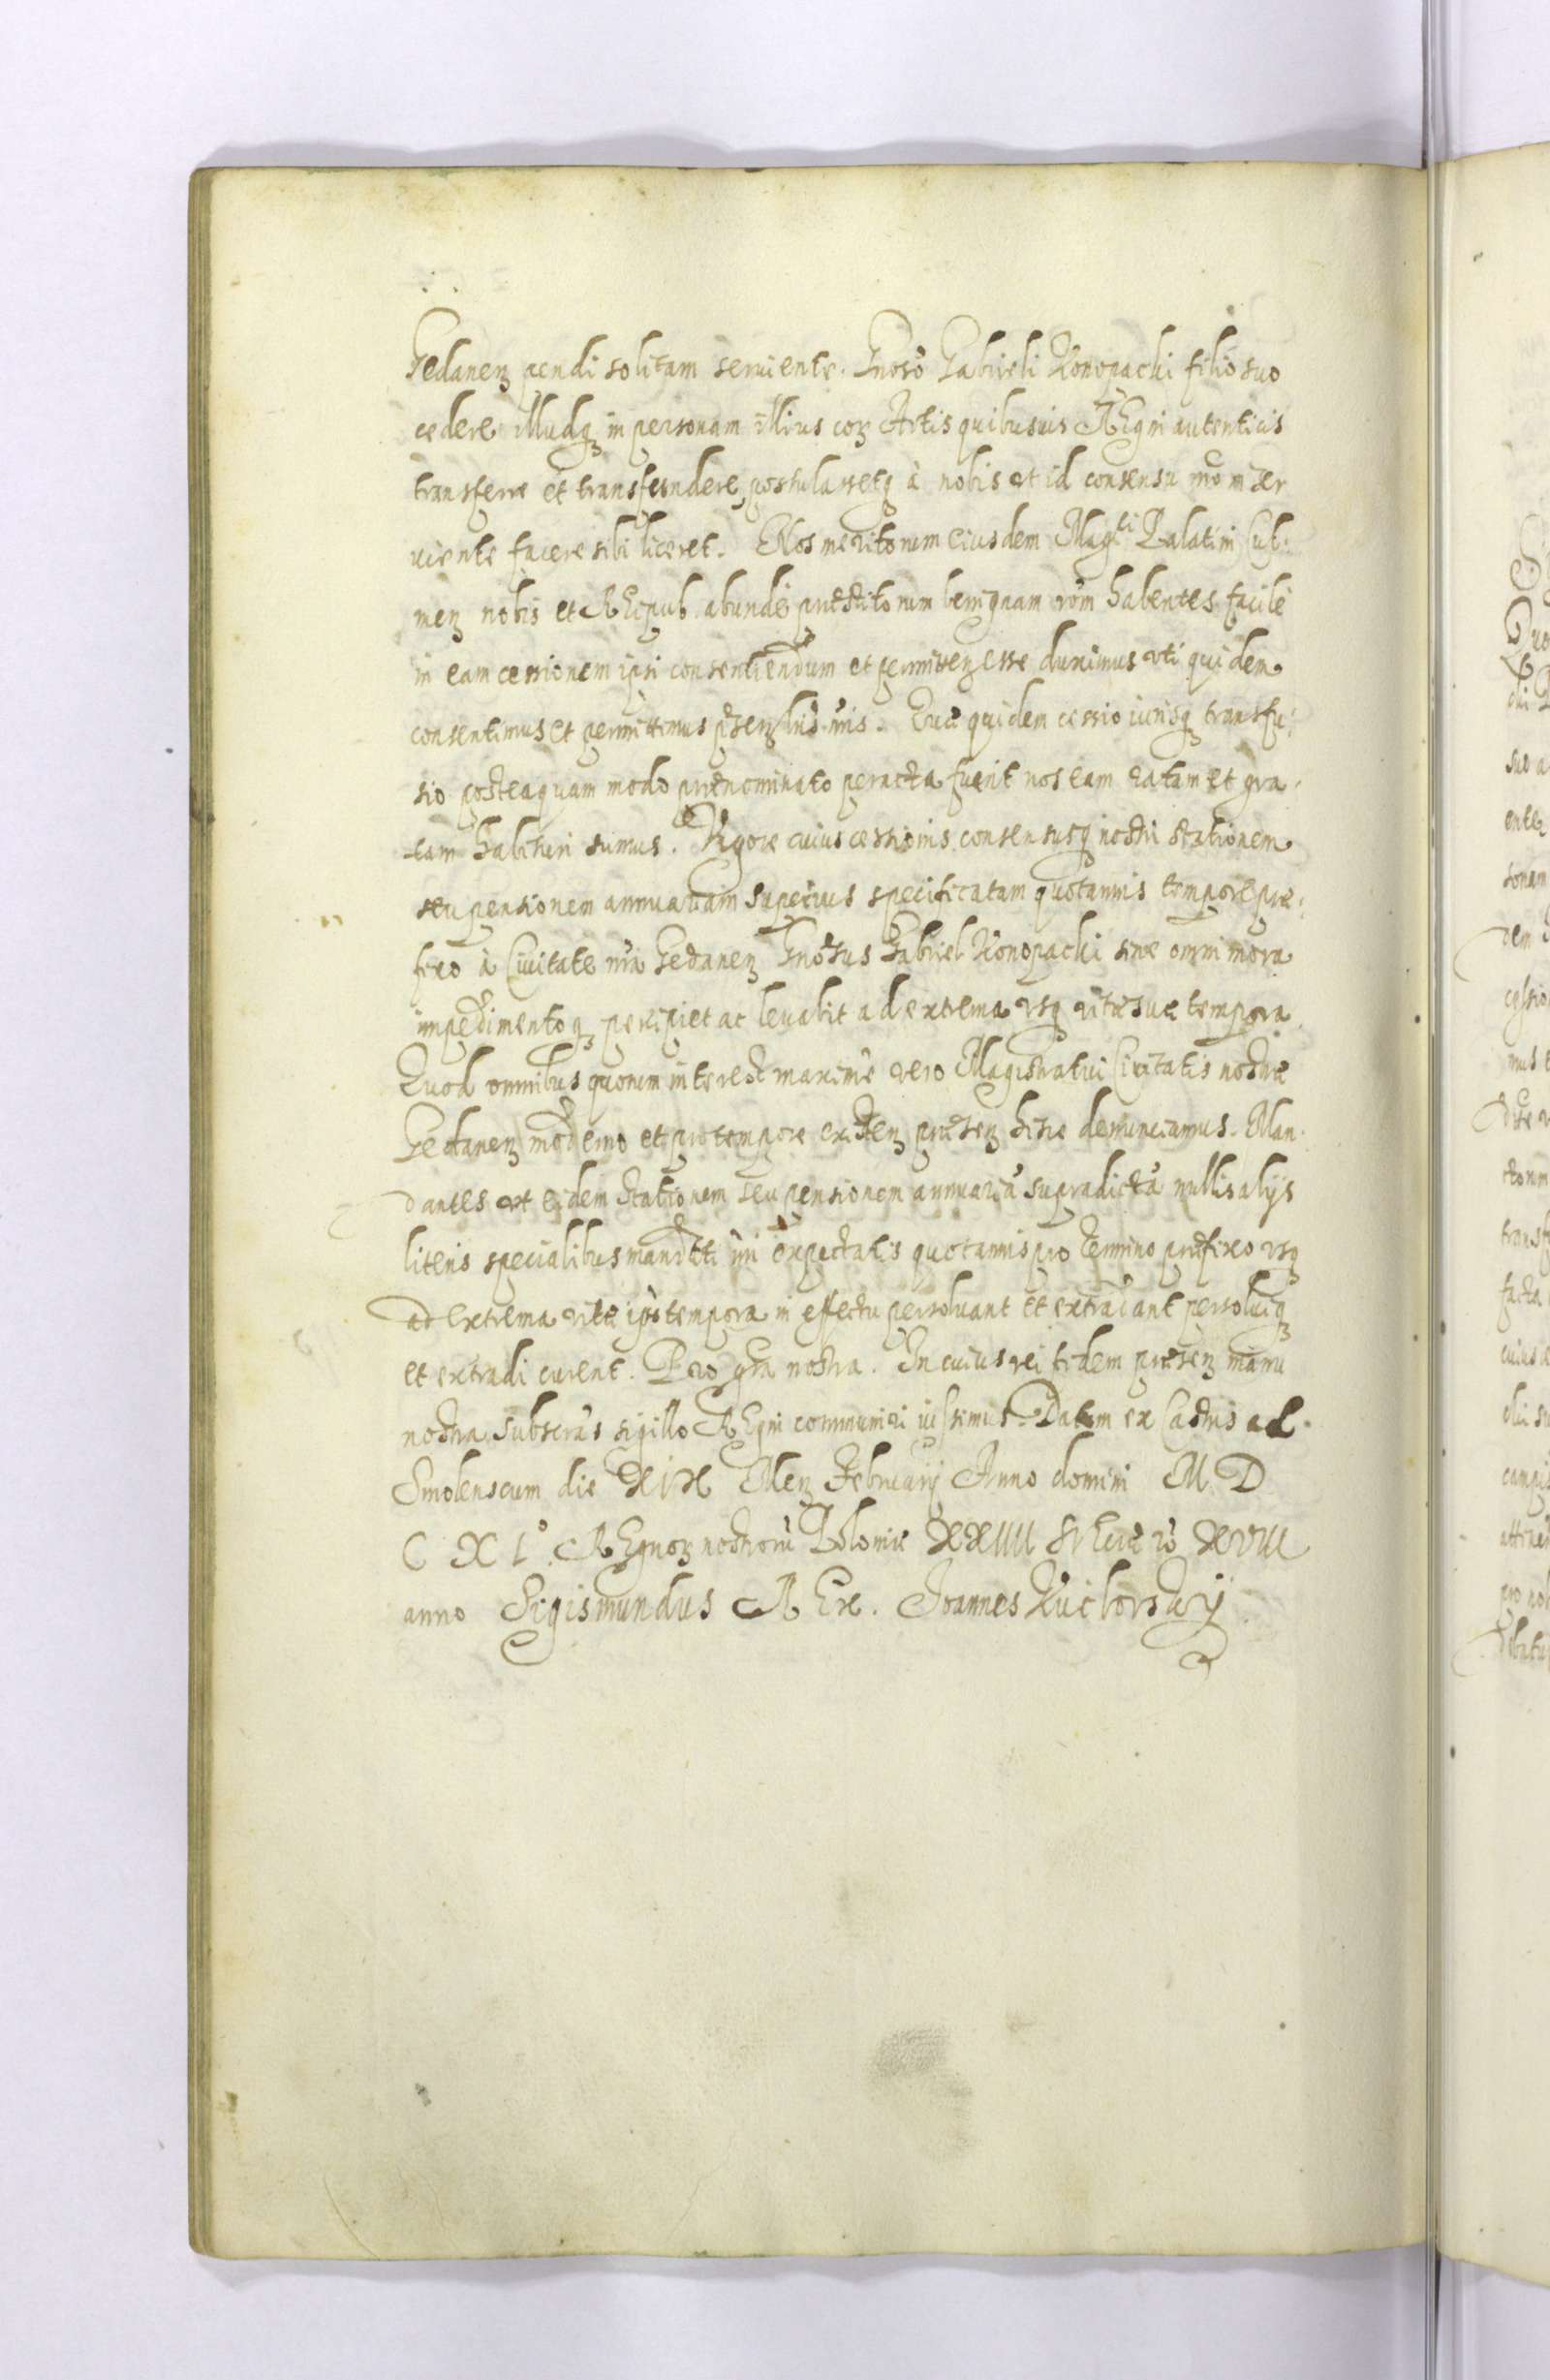 Gedaneꝫ pendi solitam seruiente. Gnoso Gabrieli Konopacki filio suo
cedere illudqꝫ in personam illius coꝫ Actis quibusuis REgni autenticis
transferre et transfundere, postulassetqꝫ à nobis vt id consensu nro inter
uiente facere sibi liceret. Nos meritorum eiusdem Magci Palatini Cul:
meꝫ nobis et REipub. abundè præstitorum benignam rōm habentes facilè
in eam cessionem ipsi consentiendum et permitteꝫ esse duximus vti quidem
consentimus et permittimus pñteꝫ lris nris. Quæ quidem cessio iurisqꝫ transfu:
sio posteaquam modo prænominato peracta fuerit nos eam ratam et gra:
tam habituri sumus. Vigore cuius cessionis consensusqꝫ nostri stationem
seu pensionem annuatiam superius specificatam quotannis tempore præ:
fixo à Ciuitate nra Gedaneꝫ Gnosus Gabriel Konopacki sine omni mora
impedimentoqꝫ percipiet ac leuabit ad extrema vsqꝫ vitæ suæ tempora.
Quod omnibus quorum interest maximè vero Magistratui Ciuitatis nostræ
Gedaneꝫ moderno et pro tempore existeꝫ præseꝫ hisce denunciamus. Man:
dantes vt eidem stationem seu pensionem annuariā supradictā nullis alijs
literis specialibus mandatis nri expectatis quotannis pro termino præfixo vsqꝫ
ad extrema vitæ ipsius tempora in effectu persoluant et extradant persoluiqꝫ
et extradi curent. Pro gra nostra. In cuius rei fidem præseꝫ manu
nostra subscras sigillo REgni communiri iussimus. Datum ex Castris ad
Smolenscum die XIX Meꝫ Februarij Anno domini M. D
C XIº. REgnoꝫ nostrorū Poloniæ XXIIII SVEciæ vo XVIII
anno Sigismundus REx. Joannes Kuchorskij